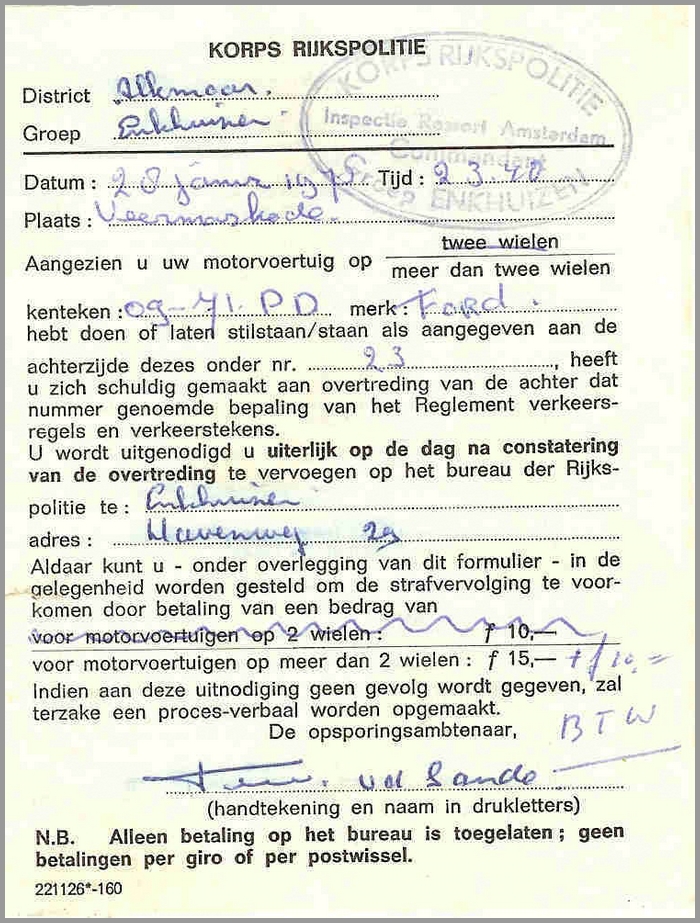 KORPS RIJKSPOLITIE
KORPS RIJKSPOLITIE
Inspectie Ressort Amsterdam
Commandant
Groep ENKHUIZEN
District Alkmaar.
Groep Enkhuizen
Datum : 28 janu 1975 Tijd : 23.40
Plaats :
twee wielen
Aangezien u uw motorvoertuig op
meer dan twee wielen
kenteken : 09-71. PD merk : Ford.
hebt doen of laten stilstaan/staan als aangegeven aan de
achterzijde dezes onder nr. 23, heeft
u zich schuldig gemaakt aan overtreding van de achter dat
nummer genoemde bepaling van het Reglement verkeers-
regels en verkeerstekens.
U wordt uitgenodigd u uiterlijk op de dag na constatering
van de overtreding te vervoegen op het bureau der Rijks-
politie te : Enkhuizen
adres : Havenweg
Aldaar kunt u - onder overlegging van dit formulier - in de
gelegenheid worden gesteld om de strafvervolging te voor-
komen door betaling van een bedrag van
voor motorvoertuigen op 2 wielen : f 10,—
voor motorvoertuigen op meer dan 2 wielen : f 15,— + f 10,=
Indien aan deze uitnodiging geen gevolg wordt gegeven, zal
terzake een proces-verbaal worden opgemaakt.
De opsporingsambtenaar, BTW
vd Sande
(handtekening en naam in drukletters)
N.B. Alleen betaling op het bureau is toegelaten ; geen
betalingen per giro of per postwissel.
221126*-160